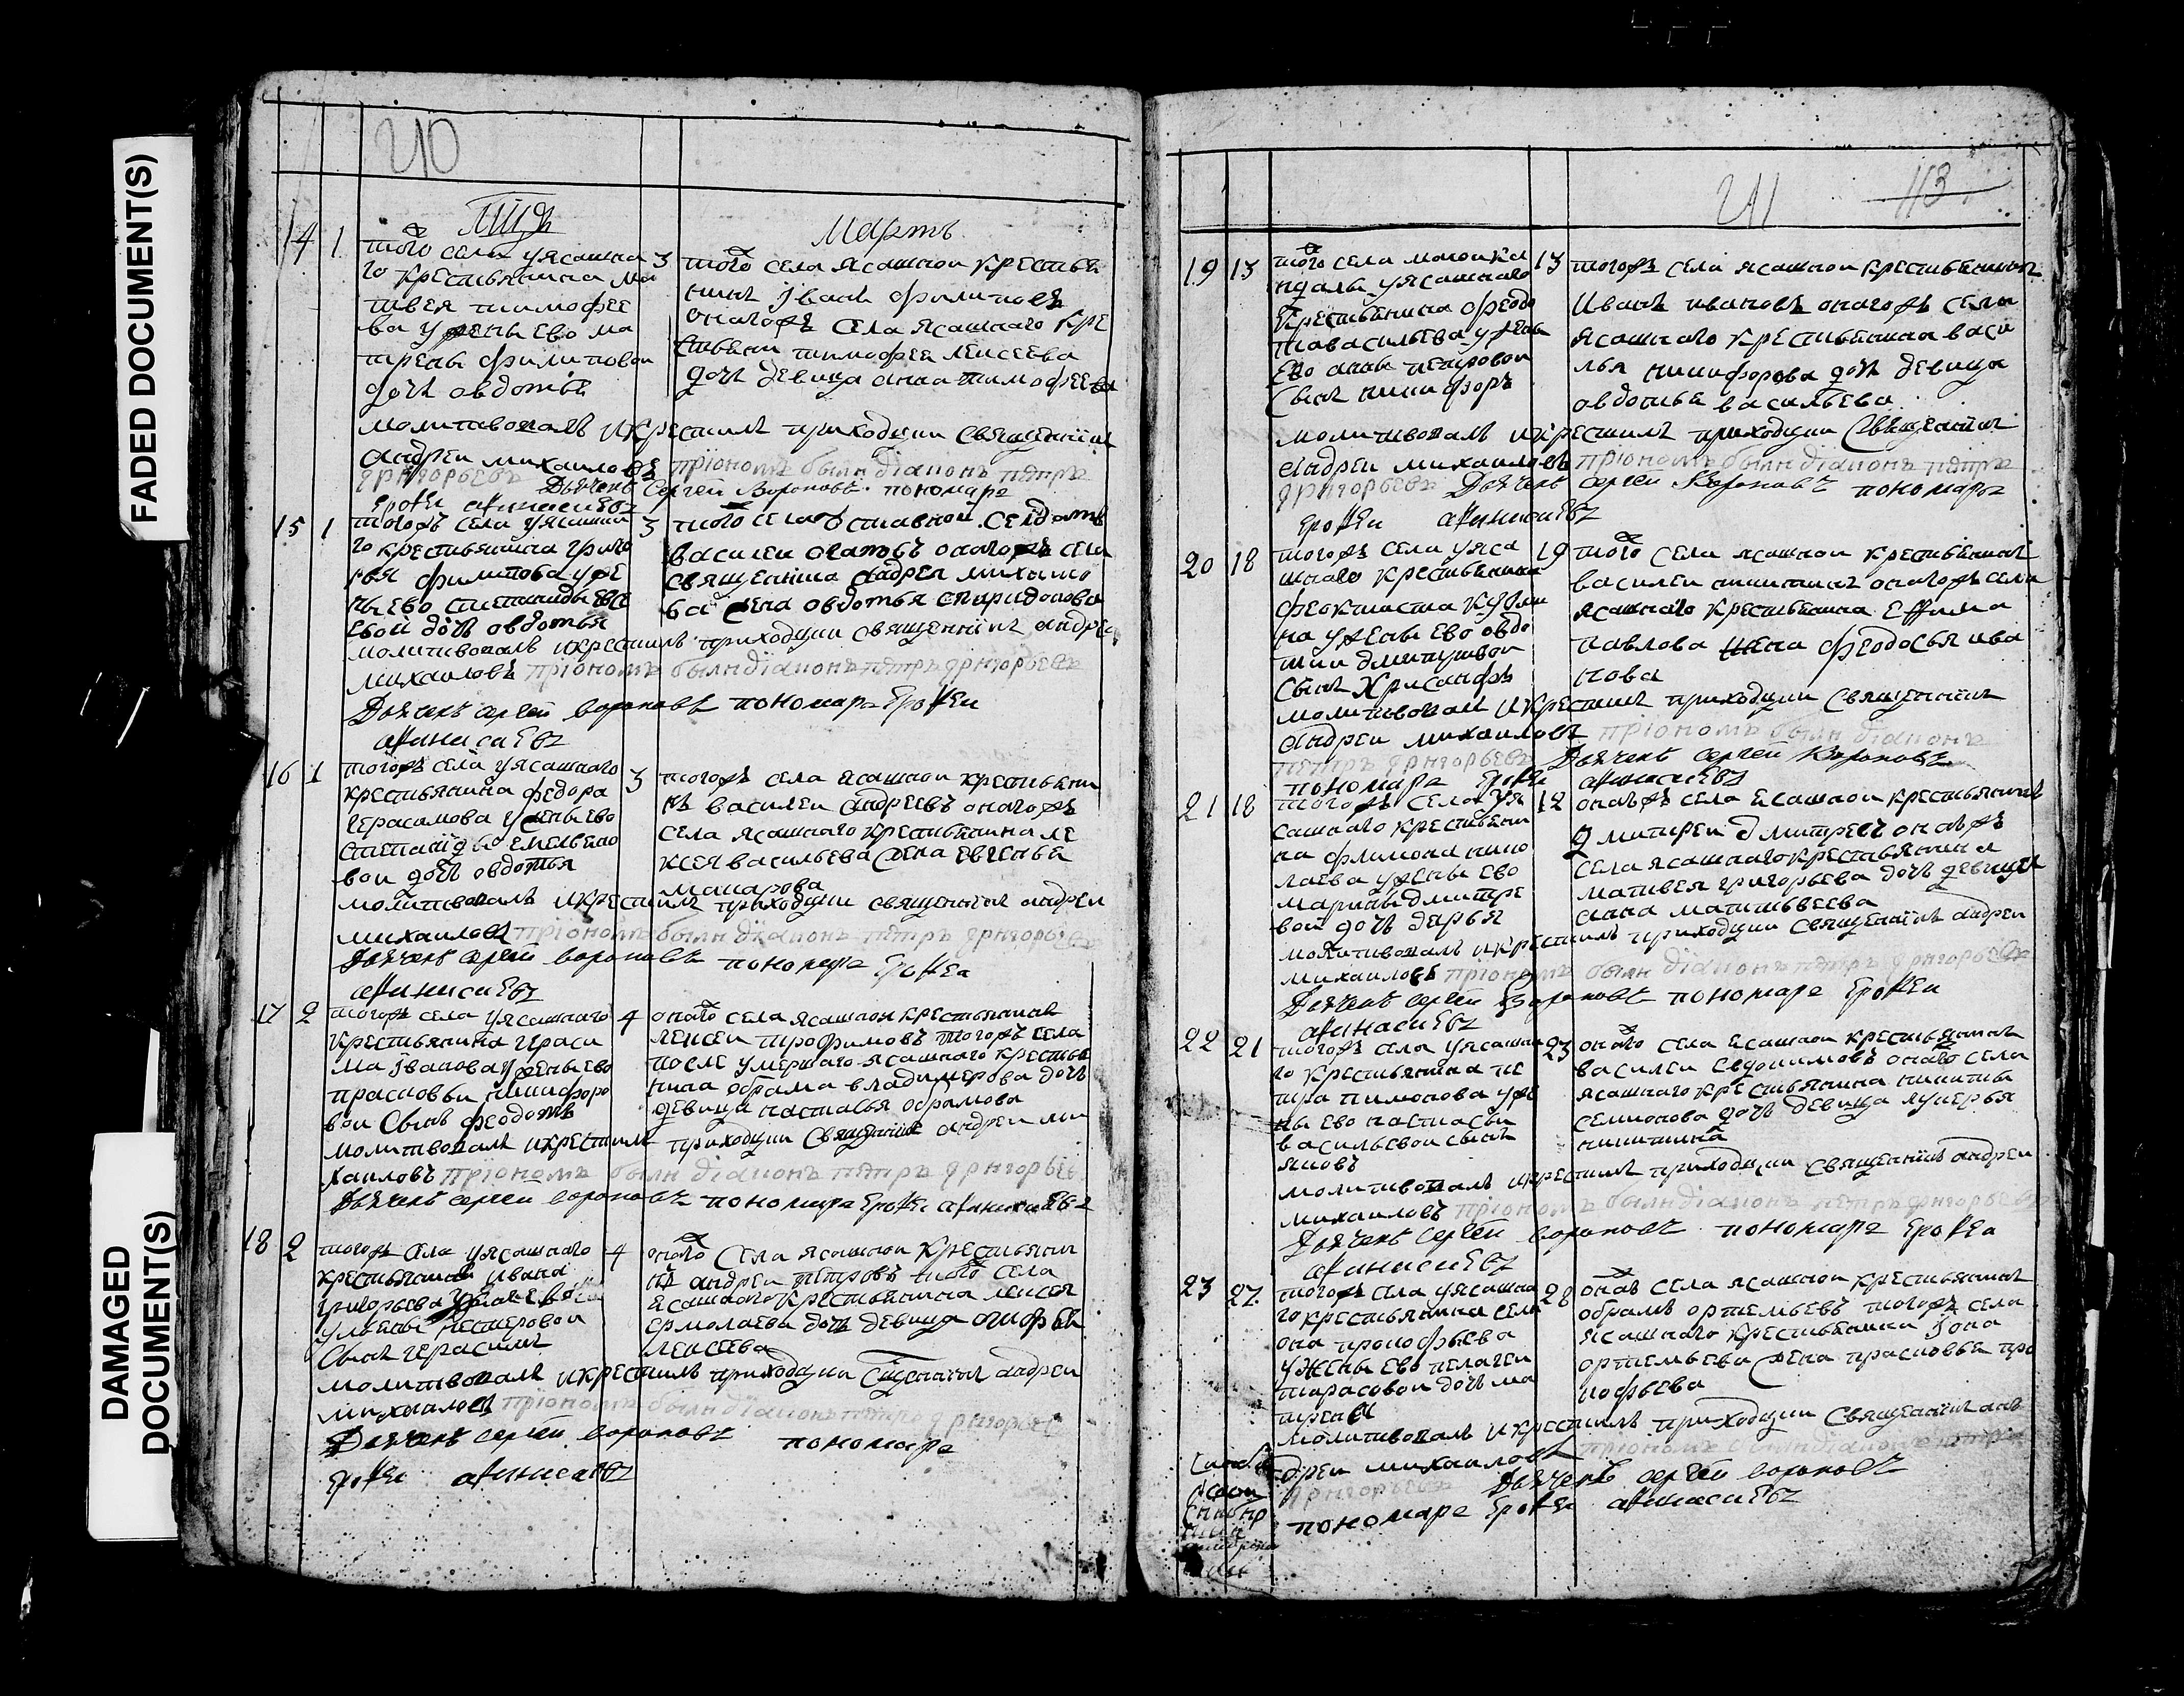 FADED DOCUMENT(S)
DAMAGED
DOCUMENT(S)
210
Мартъ
14 1
того села уясашна
го крестьянина ма
твея тимофее
ва ужены ево ма
трены филиповои
дочь овдотья
3
того села ясашнои крестья
нинъ іванъ филиповъ
оногожъ села ясашнаго кре
стьяни тимофея
дочь девица анна тимофеева
молитвовалъ икрестилъ приходции священникъ
андреи михаиловъ пріномъ былн діаконъ пѣтръ
грнгорьевъ Дьячекъ Сергей Вороновъ пономарь
15 1
тогожъ села уясашна
го крестьянина григо
рья филипова уже
ны ево степаниды
дочь овдотья
3
того села
василеи оногожъ села
священника андрея михаило
ва жена овдотья спиридонова
молитвовалъ икрестилъ приходции священникъ андреи
михаиловъ пріномъ былн діаконъ пѣтръ грнгорьевъ
Дьячекъ сергей вороновъ пономарь
16 1
тогожъ села уясашнаго
крестьянина федора
герасимова ужены ево
степаниды емельяно
вои дочь овдотья
3
тогожъ села ясашнои крестьяни
нъ василеи андреевъ оногожъ
села ясашнаго крестьянина ле
ксея васильева жена евгенья
макарова
молитвовалъ икрестилъ приходции священникъ андреи
михаиловъ пріномъ былн діаконъ пѣтръ грнгорьевъ
Дьячекъ сергей вороновъ пономарь
17 2
тогожъ села уясашнаго
крестьянина гераси
ма іванова ужены ево
прасковьи никифоро
вои сынъ федотъ
4
оного села ясашнои крестьянинъ
лексеи трофимовъ тогожъ села
после умершаго ясашнаго крестья
нина обрама владимерова дочь
девица настасья обрамова
молитвовалъ икрестилъ приходции священникъ андреи ми
хаиловъ пріномъ былн діаконъ пѣтръ грнгорьев
Дьячекъ сергей вороновъ пономарь
18 2
тогожъ села уясашнаго
крестьянина ивана
григорьева
ульяны нестеровои
сынъ герасимъ
4
оного села ясашнои крестьянин
нъ андреи петровъ того села
ясашнаго крестьянина
ермолаева дочь девица
лексеева
молитвовалъ икрестилъ приходции андреи
михаиловъ пріномъ былн діаконъ пѣтръ грнгорьев
Дьячекъ сергей вороновъ пономарь
211 113
19 13
того села
уясашнаго
крестьянина федо
та васильева ужены
ево анны петровои
сынъ никифоръ
13
тогожъ села ясашнои крестьянинъ
иванъ ивановъ оногожъ села
ясашнаго крестьянина васи
лья никифорова дочь девица
овдотья васильева
молитвовалъ икрестилъ приходции священникъ
андреи михаиловъ пріномъ былн діаконъ пѣтръ
грнгорьевъ Дьячекъ сергей Вороновъ пономарь
20 18
тогожъ села уяса
шнаго крестьянина
феоктиста кузми
на ужены ево овдо
тии дмитриевои
сынъ Хрисанфъ
19
того села ясашнои крестьянинъ
василеи никитинъ оногожъ села
ясашнаго крестьянина ефима
павлова жена феодосья ива
нова
молитвовалъ икрестилъ приходции священникъ
андреи михаиловъ пріномъ былн діаконъ
пѣтръ грнгорьевъ Дьячекъ сергей Вороновъ
пономарь
21 18
тогожъ села уя
сашнаго крестьяни
на филимона нико
лаева ужены ево
марии дмитре
вои дочь дарья
12
оногожъ села ясашнои крестьянинъ
дмитреи дмитревъ оногожъ
села ясашнаго крестьянина
матвея григорьева дочь девица
анна матвеева
молитвовалъ икрестилъ приходции священникъ андреи
михаиловъ пріномъ былн діаконъ пѣтръ грнгорьевъ
Дьячекъ сергей вороновъ пономарь
22 21
тогожъ села уясашна
го крестьянина пе
тра пимонова уже
ны ево настасьи
васильевои сынъ
яковъ
23
оного села ясашнои крестьянинъ
василеи евдокимовъ оного села
ясашнаго крестьянина никиты
семионова дочь девица лукерья
никитина
молитвовалъ икрестилъ приходции священникъ андреи
михаиловъ пріномъ былн діаконъ пѣтръ грнгорьевъ
Дьячекъ сергей вороновъ пономарь
23 27
тогожъ села уясашна
го крестьянина семи
она прокофьева
ужены ево пелагеи
тарасовои дочь ма
трена
28
села ясашнои крестьянинъ
обрамъ ортемьевъ тогожъ села
ясашнаго крестьянина іона
ортемьева жена прасковья про
кофьева
молитвовалъ икрестилъ приходции священникъ ан
дреи михаиловъ
грнгорьевъ Дьячекъ сергей вороновъ
пономарь